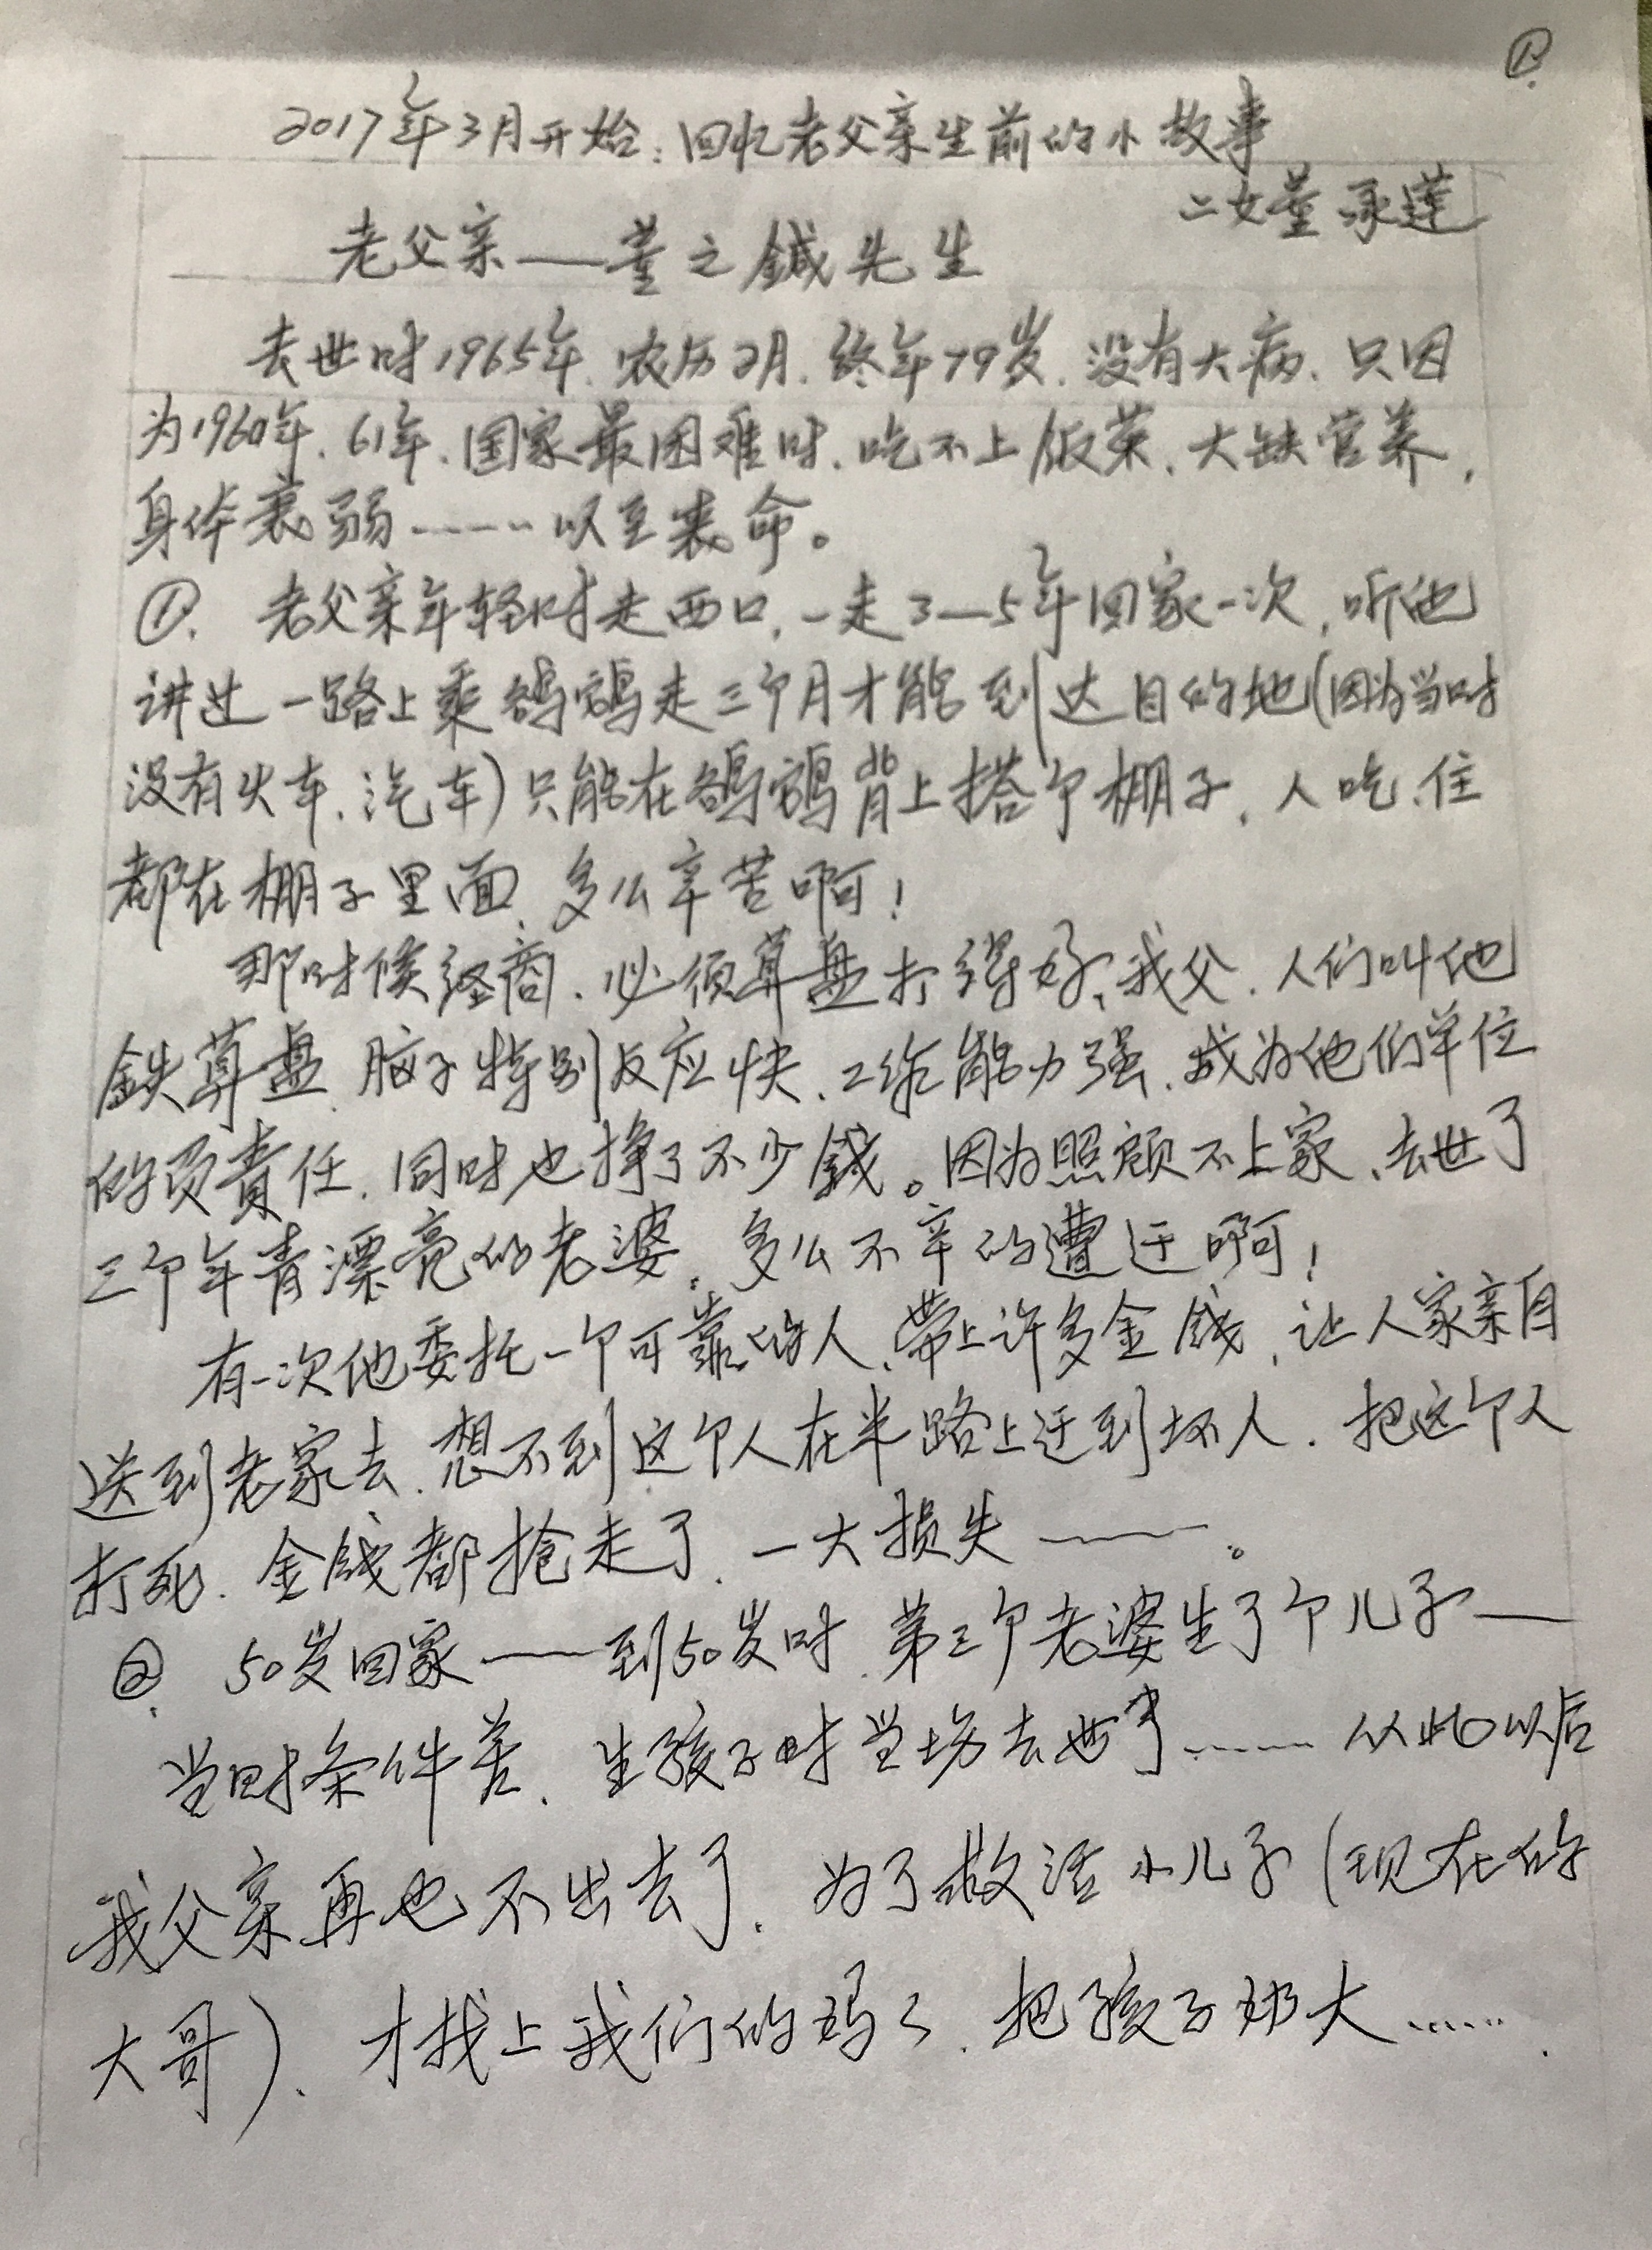 ①
2017年3月开始：回忆老父亲生前的小故事
二女董承莲
老父亲——董之鍼先生
去世时1965年、农历2月、终年79岁、没有大病、只因
为1960年、61年、国家最困难时、吃不上饭菜、大缺营养，
身体衰弱……以至丧命。
①、老父亲年轻时走西口、一走3—5年回家一次，听他
讲过一路上乘 走三个月才能到达目的地(因为当时
没有火车、汽车)只能在 背上搭个棚子、人吃、住
都在棚子里面、多么辛苦啊！
那时候经商、必须算盘打得好、我父、人们叫他
鉄算盘、脑子特别反应快、工作能力强、成为他们单位
的负责任、同时也挣了不少錢。因为照顾不上家、去世了
三个年青漂亮的老婆。多么不辛的遭迂啊！
有一次他委托一个可靠的人、带上许多金錢、让人家亲自
送到老家去、想不到这个人在半路上迂到坏人、把这个人
打死、金錢都抢走了、一大损失——。
② 50岁回家——到50岁时、第三个老婆生了个儿子—
当时条件差、生孩子时当场去世了……从此以后
我父亲再也不出去了、为了救活小儿子(现在的
大哥)、才找上我们的妈々、把孩子奶大……